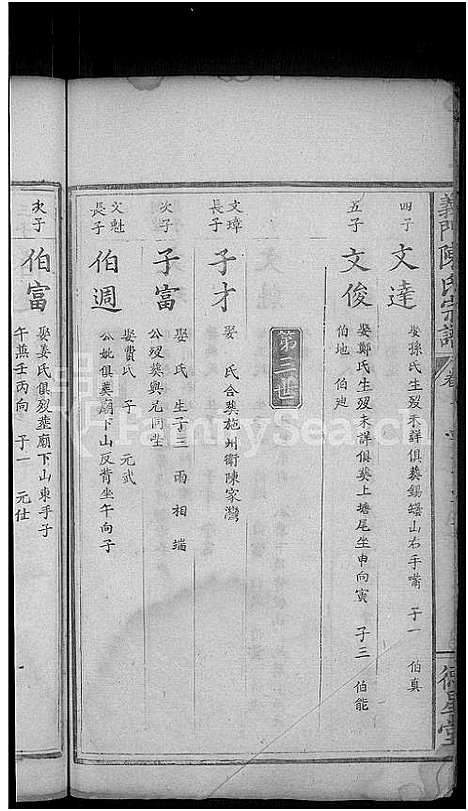 義門陳氏宗譜
德星堂
四子
文達
娶孫氏生歿未詳俱葵錫山右手嘴 子一 伯真
五子
文俊
娶鄭氏生歿未詳俱葵上塘尾坐申向寅 子三 伯能
伯地 伯廸
第三世
文璋
長子
子才
娶 氏合葵施州衛陳家灣
次子
子富
娶 氏 生子三 雨 相 端
公歿葵與兄同坐
文魁
長子
伯週
娶費氏 子一 元武
公妣俱葵廟下山反背坐午向子
次子
伯富
娶姜氏俱歿葵廟下山東手子
午兼壬丙向 子一 元仕
FamilySearch